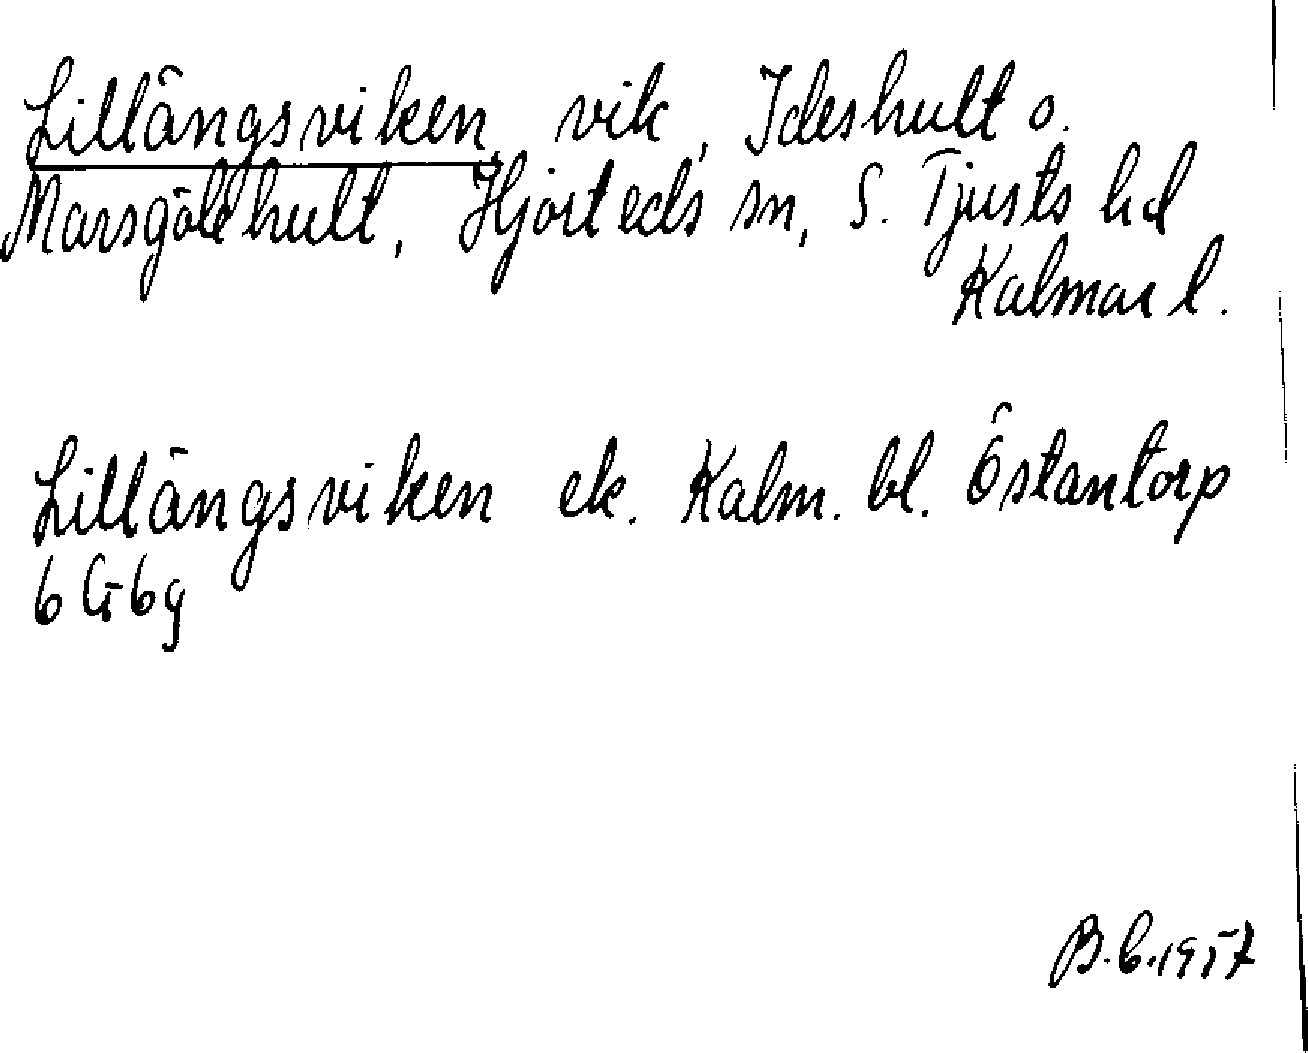 Lillängsviken, vik, Ideshult o.
Marsgölehult, Hjorteds sn, S. Tjusts hd
Kalmar l.
Lillängsviken ek. Kalm. bl. Östantorp
6 G 6g
B.C. 1957